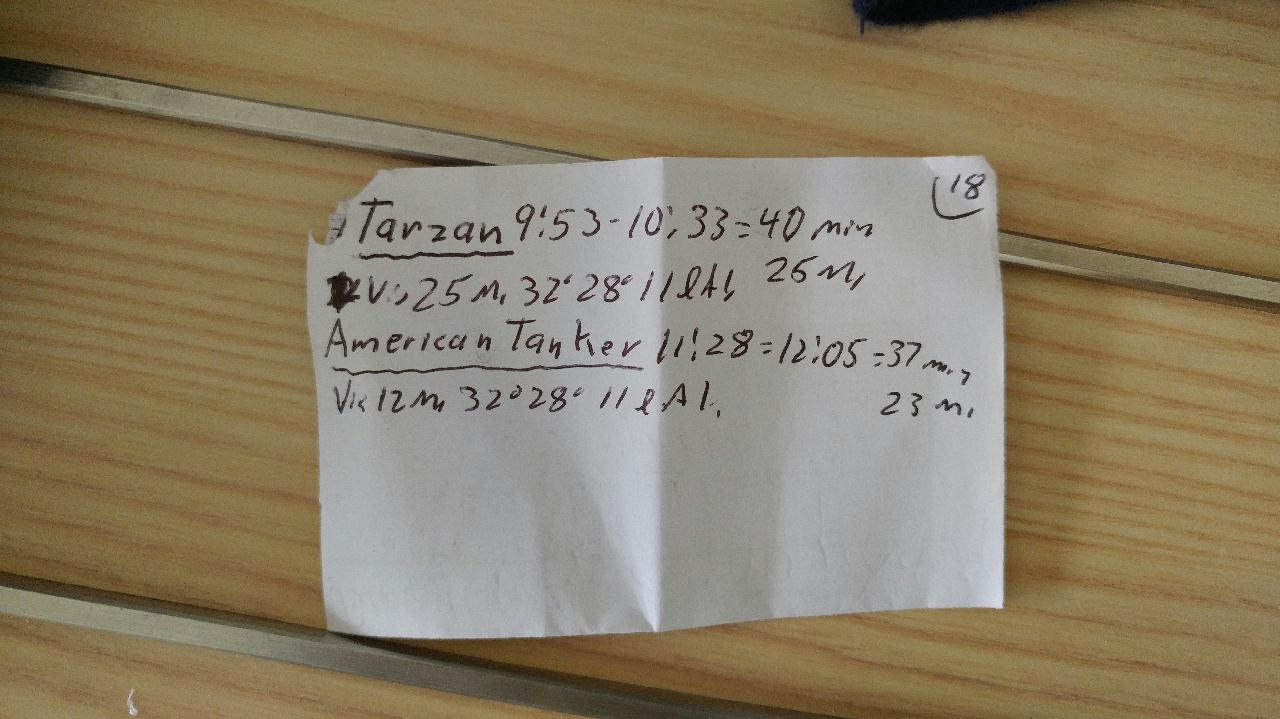 18
Tarzan 9:53-10:33=40 min
Vis 25 M. 32° 28° 11 l Al. 26 M.
American Tanker 11:28=12:05=37 min
Vis 12 M 32° 28° 11 l Al. 23 m.